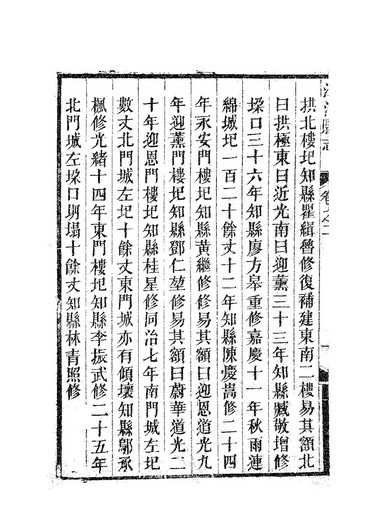 拱北樓圮知縣瞿緝曾修復補建東南二樓易其額北
曰拱極東曰近光南曰迎薰三十三年知縣臧敬增修
垜口三十六年知縣廖方皋重修嘉慶十一年秋雨連
綿城圮一百二十餘丈十二年知縣陳慶嵩修二十四
年永安門樓圮知縣黃繼修修易其額曰迎恩道光九
年迎薰門樓圮知縣鄧仁堃修易其額曰蔚華道光二
十年迎恩門樓圮知縣桂星修同治七年南門城左圮
數丈北門城左圮十餘丈東門城亦有傾壞知縣鄔承
楓修光緒十四年東門樓圮知縣李振武修二十五年
北門城左垜口坍塌十餘丈知縣林青照修
縣志
卷之二